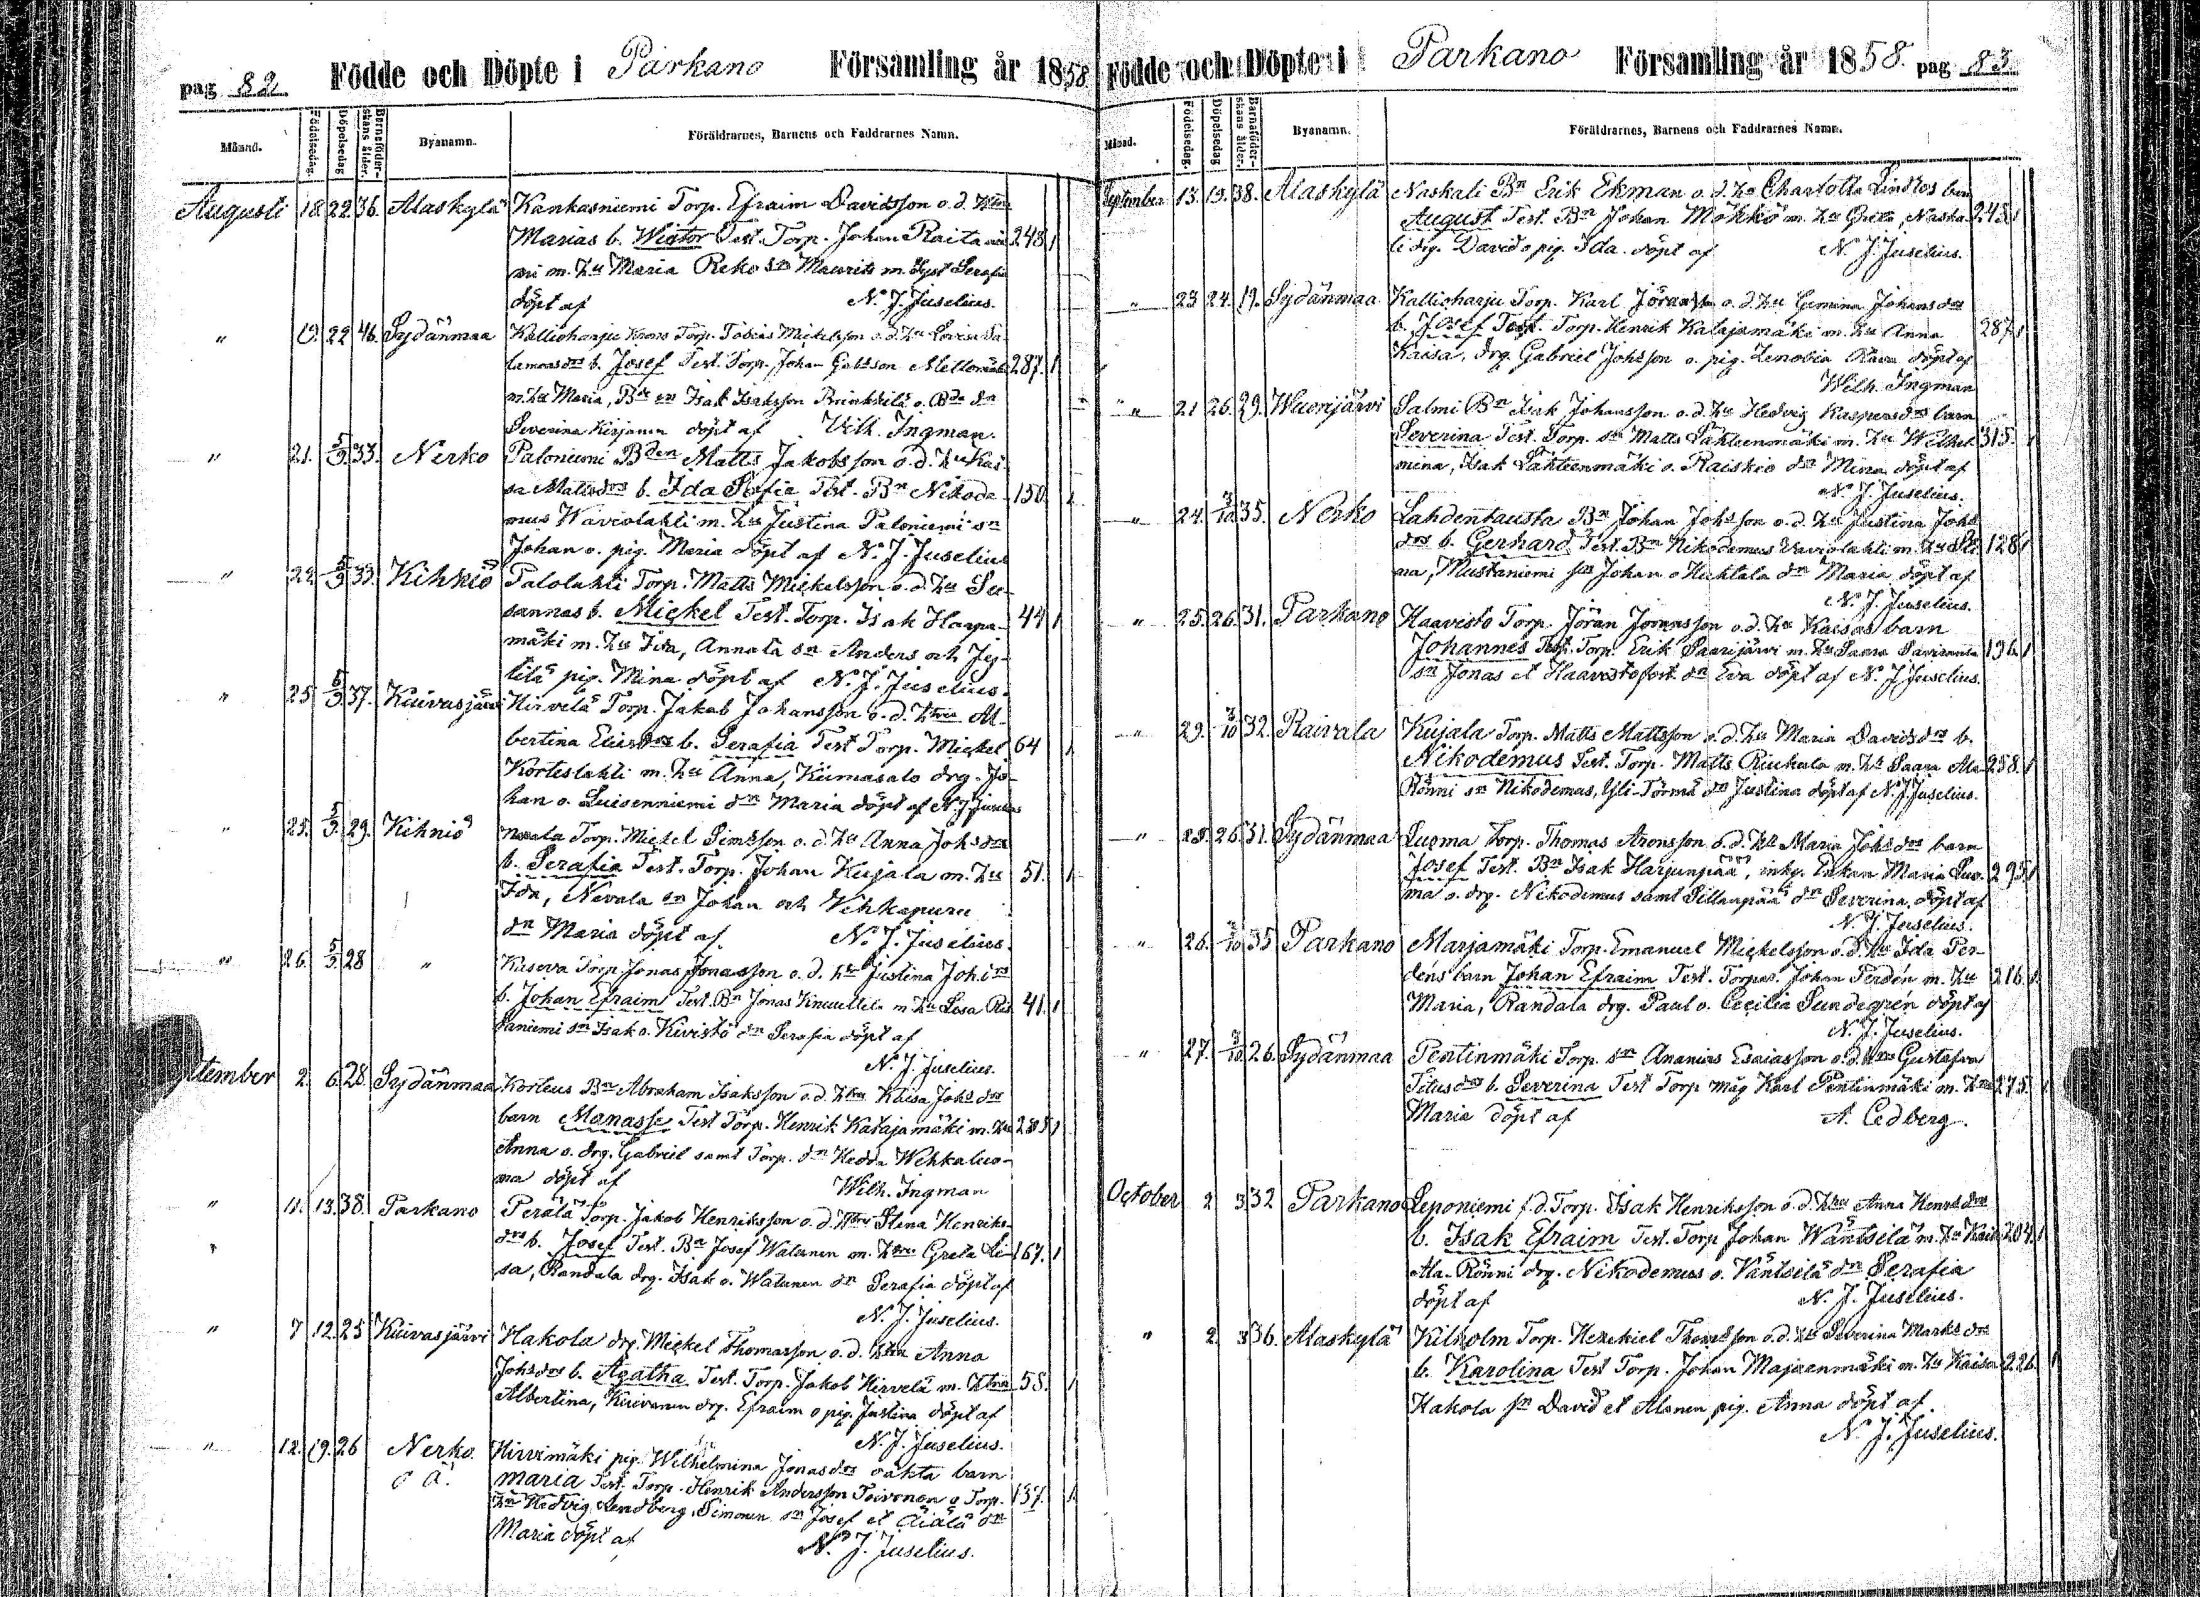 pag 82
Födde och Döpte i Parkano Församling år 1858
Månad. Födelsedag. Döpelsedag Barnaföderskans ålder. Byanamn. Föräldrarnes, Barnens och Faddrarnes Namn.
Augusti 18. 22 36. Alaskylä Kankasniemi Torp. Efraim Davidsson o. d. Htru
Marias b. Wictor Test. Torp. Johan Raita 248 1
mi m. Hu Maria Reko sn Maurits m. Syst Serafia
döpt af N. J. Juselius.
" 19. 22 46. Sydänmaa Kallioharju Krono Torp. Tobias Mickelsson o. d. Hu Lovisa Sa-
lamonsdr b. Josef Test. Torp. Johan Gabsson 287. 1
m. Hu Maria, Bde sn Isak Isaksson o. Bde dn
Severina Kirjanen döpt af Wilh. Ingman.
" 21. 5/9. 33. Nerko Paloniemi Bden Matts Jakobsson o. d. Hu Kai-
sa Mattsdrs b. Ida Sofia Test. Bn Nikode- 150. 1
mus Waviolahti m. Hu Justina Paloniemi sn
Johan o. pig. Maria döpt af N. J. Juselius
" 22. 5/9. 33. Kihniö Palolahti Torp. Matts Mickelsson o. d. Hu Su-
sannas b. Mickel Test. Torp. Isak Harja- 44 1
mäki m. Hu Ida, Annala sn Anders och Jy-
lilä pig. Mina döpt af N. J. Juselius.
" 25 5/9. 37. Kuivasjärvi Hirvelä Torp. Jakob Johansson o. d. Htru Al-
bertina Eliasdrs b. Serafia Test Torp. Mickel 64 1
Korteslahti m. Hu Anna, Kiimasalo drg. Jo-
han o. Luisenniemi dn Maria döpt af N. J. Juselius
" 25. 5/9. 29. Kihniö Nevala Torp. Mickel Simsson o. d. Hu Anna Johsdrs
b. Serafia Test. Torp. Johan Kujala m. Hu 51. 1
Ida, Nevala sn Johan och Vehkapuru
dn Maria döpt af. N. J. Juselius.
" 26. 5/9. 28 " Kuseva Torp Jonas Jonasson o. d. Hu Justina Johdrs
b. Johan Efraim Test. Bn Jonas Knuuttila m Hu Lisa 41. 1
saniemi sn Isak o. Kivistö dn Serafia döpt af
N. J. Juselius.
September 2. 6. 28. Sydänmaa Korteus Bn Abraham Isaksson o. d. Htru Kaisa Johsdrs
barn Manasse Test Torp. Henrik Katajamäki m. Hu 285 1
Anna o. drg. Gabriel samt Torp. dn Hedda Wehkaluo-
ma döpt af Wilh. Ingman
" 11. 13. 38. Parkano Perälä Torp. Jakob Henriksson o. d. Htru Stina Henriks-
drs b. Josef Test. Bn Josef Watanen m. Htru Greta Li- 167. 1
sa, Randala drg. Isak o. Watanen dn Serafia döpt af
N. J. Juselius.
" 7 12. 25 Kuivasjärvi Hakola drg. Mickel Thomasson o. d. Htru Anna
Johsdrs b. Agatha Test. Torp. Jakob Hirvelä m. Htru 58. 1
Albertina, Kuivanen drg. Efraim o pig. Justina döpt af
N. J. Juselius.
" 12. 19. 26 Nerko. Hirvimäki pig. Wilhelmina Jonasdrs oäkta barn
o ä. Maria Test. Torp. Henrik Andersson Toivonen o Torp. 137. 1
Hu Hedvig Sandberg, Simonen sn Josef et Äiälä dn
Maria döpt af N. J. Juselius.
Födde och Döpte i Parkano Församling år 1858. pag 83
Månad. Födelsedag. Döpelsedag Barnaföderskans ålder. Byanamn. Föräldrarnes, Barnens och Faddrarnes Namn.
September 13. 19. 38. Alaskylä Naskali Bn Erik Ekman o. d. Hu Charlotta Lindros barn
August Test. Bn Johan Mökkö m. Hu Greta, Naska- 245 1
li drg. David o pig. Ida. döpt af N. J. Juselius.
" 23 24. 19. Sydänmaa Kallioharju Torp. Karl Jöransson o. d. Hu Gemina Johansdrs
b. Josef Test. Torp. Henrik Katajamäki m. Hu Anna 287. 1
Kaisa, drg. Gabriel Johsson o. pig. Zenobia döpt af
Wilh. Ingman
" 21 26. 29. Wuorijärvi Salmi Bn Isak Johansson o. d. Hu Hedvig Kaspersdrs barn
Severina Test. Torp. sn Matts Lähteenmäki m. Hu Wilhel- 315. 1
mina, Isak Lähteenmäki o. Raiskio dn Mina döpt af
N. J. Juselius.
" 24. 3/10 35. Nerko Lahdentausta Bn Johan Johsson o. d. Hu Justina Johs
drs b. Gerhard Test. Bn Nikodemus Waviolahti m. Hu Sti- 128 1
na, Mustaniemi sn Johan o Huhtala dn Maria döpt af
N. J. Juselius.
" 25. 26. 31. Parkano Haavisto Torp. Jöran Jöransson o. d. Hu Kaisas barn
Johannes Test. Torp. Erik Saarijärvi m. Hu Saara Saviranta 196. 1
sn Jonas et Haavisto torp. dn Eva döpt af N. J. Juselius.
" 29. 3/10 32. Raivala Kujala Torp. Matts Mattsson o. d. Hu Maria Davidsdrs b.
Nikodemus Test. Torp. Matts Riukula m. Hu Saara Ala- 258. 1
Rönni sn Nikodemus, Yli-Törmä dn Justina döpt af N. J. Juselius.
" 25. 26 31. Sydänmaa Luoma Torp. Thomas Aronsson o. d. Hu Maria Johsdrs barn
Josef Test. Bn Isak Harjunpää, inhy. Enkan Maria Luo- 295 1
ma o. drg. Nikodemus samt Sillanpää dn Severina, döpt af
N. J. Juselius.
" 26. 3/10 35 Parkano Marjamäki Torp. Emanuel Mickelsson o. d. Hu Ida Per-
déns barn Johan Efraim Test. Torpar. Johan Perdén m. Hu 216. 1
Maria, Randala drg. Paul o. Cecilia Sundegrén döpt af
N. J. Juselius.
" 27. 3/10 26. Sydänmaa Pentinmäki Torp. sn Ananias Esaiasson o. d. Htru Gustafva
Titusdrs b. Severina Test Torp måg Karl Pentinmäki m. Htru 275. 1
Maria döpt af A. Cedberg.
October 2 3 32 Parkano Leponiemi f. d. Torp. Isak Henriksson o. d. Htru Anna Henrsdrs
b. Isak Efraim Test. Torp Johan Wäntsilä m. Hu Kaisa 204. 1
Ala-Rönni drg. Nikodemus o. Väntsilä dn Serafia
döpt af N. J. Juselius.
" 2. 3 36. Alaskylä Kilholm Torp. Hezekiel Thomsson o. d. Hu Severina Marksdrs
b. Karolina Test Torp. Johan Majaenmäki m. Hu Kaisa 226. 1
Hakola sn David et Alanen pig. Anna döpt af.
N. J. Juselius.